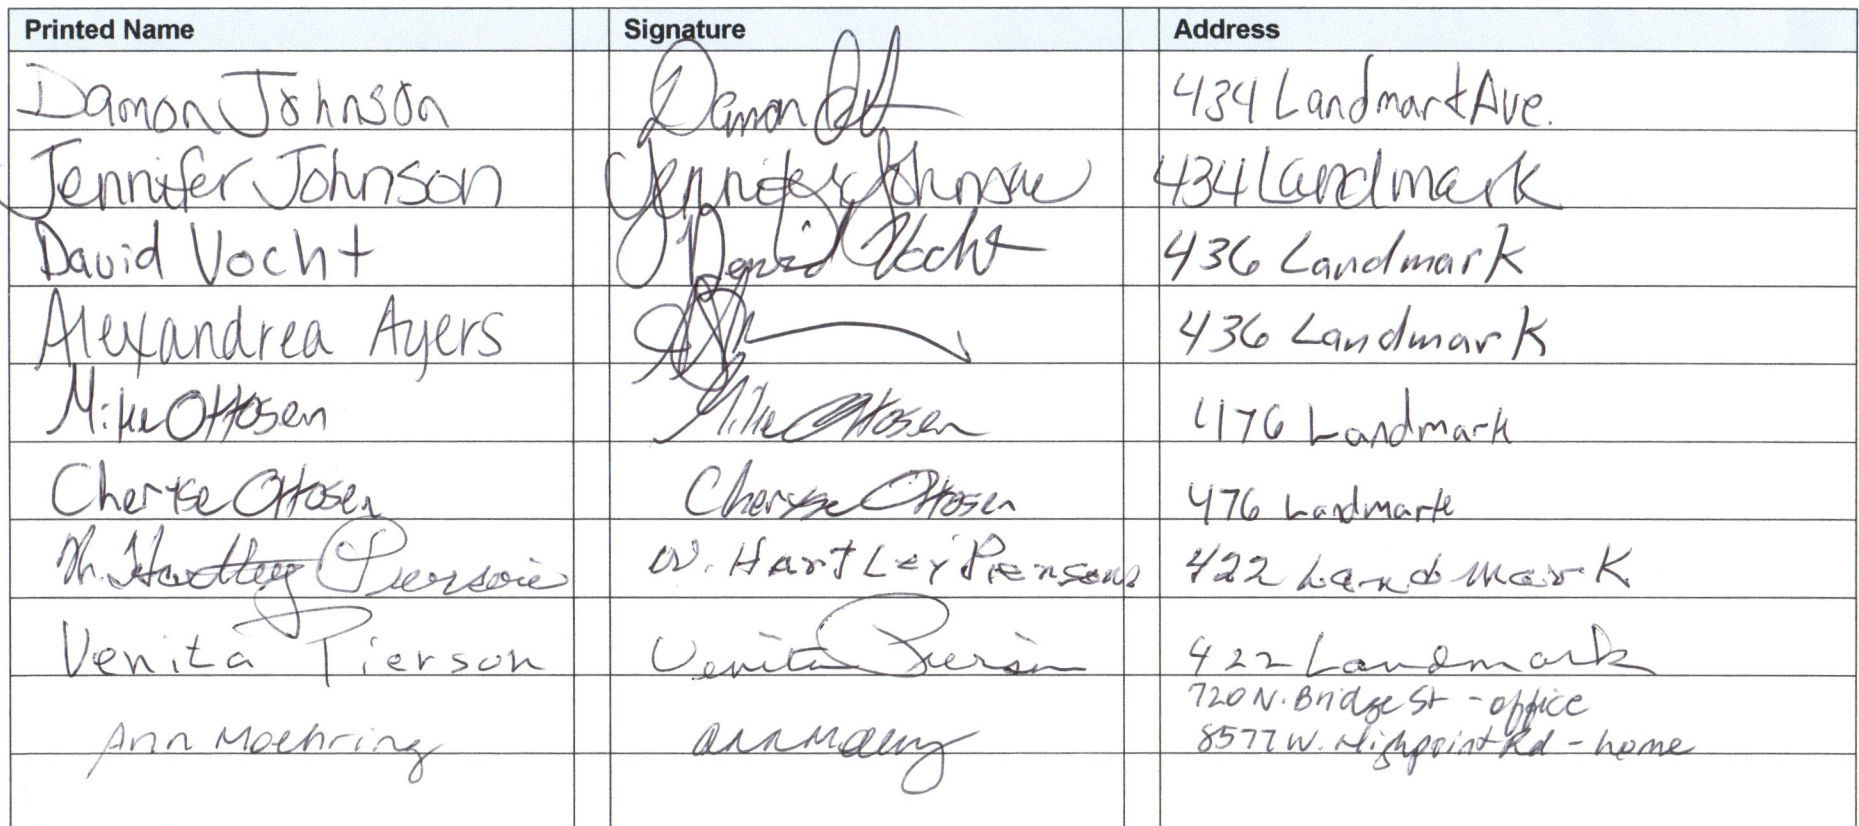 Printed Name Signature Address
Damon Johnson Damon 434 Landmark Ave.
Jennifer Johnson Jennifer Johnson 434 Landmark
David Vocht David Vocht 436 Landmark
Alexandrea Ayers 436 Landmark
Mike Ottosen Mike Ottosen 476 Landmark
Cheryse Ottosen Cheryse Ottosen 476 Landmark
Hartley Pierson W. Hartley Pierson 422 Landmark
Venita Pierson Venita Pierson 422 Landmark
720 N. Bridge St - office
Ann Moehring Ann 8577 W. Highpoint Rd - home